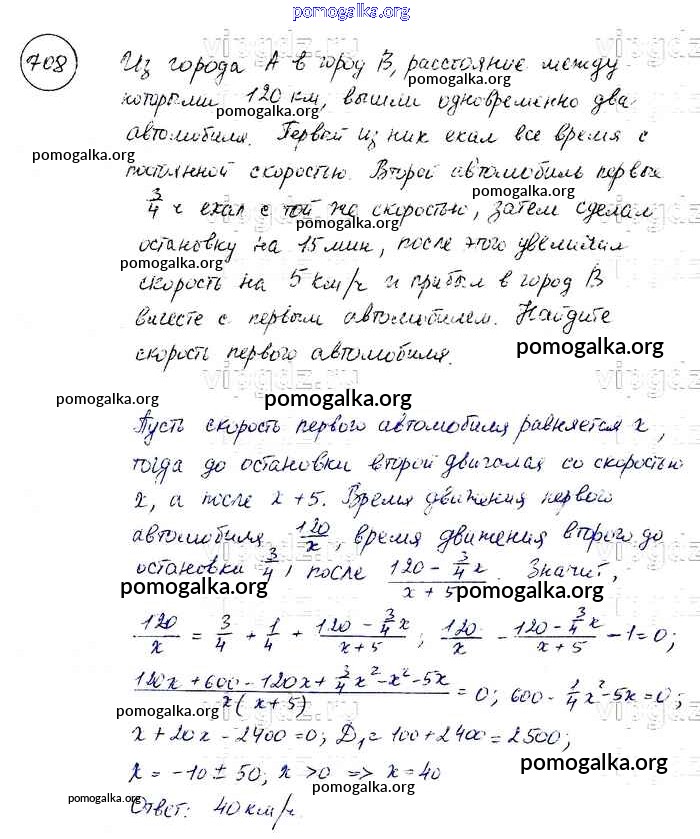 pomogalka.org
708
Из города А в город В, расстояние между
pomogalka.org
которыми 120 км, вышли одновременно два
pomogalka.org
автомобиля. Первый из них ехал все время с
pomogalka.org
постоянной скоростью. Второй автомобиль первые
pomogalka.org
3/4 ч ехал с той же скоростью, затем сделал
pomogalka.org
остановку на 15 мин, после этого увеличил
pomogalka.org
скорость на 5 км/ч и прибыл в город В
вместе с первым автомобилем. Найдите
скорость первого автомобиля.
pomogalka.org
pomogalka.org pomogalka.org
Пусть скорость первого автомобиля равняется x,
тогда до остановки второй двигался со скоростью
x, а после x+5. Время движения первого
автомобиля 120/x, время движения второго до
остановки 3/4, после (120 - 3/4 x)/(x+5). Значит,
pomogalka.org pomogalka.org
120/x = 3/4 + 1/4 + (120 - 3/4 x)/(x+5); 120/x - (120 - 3/4 x)/(x+5) - 1 = 0;
(120x + 600 - 120x + 3/4 x² - x² - 5x)/(x(x+5)) = 0; 600 - 1/4 x² - 5x = 0;
pomogalka.org pomogalka.org
x + 20x - 2400 = 0; D₁ = 100 + 2400 = 2500;
x = -10 ± 50; x > 0 => x = 40
pomogalka.org
pomogalka.org pomogalka.org
Ответ: 40 км/ч.